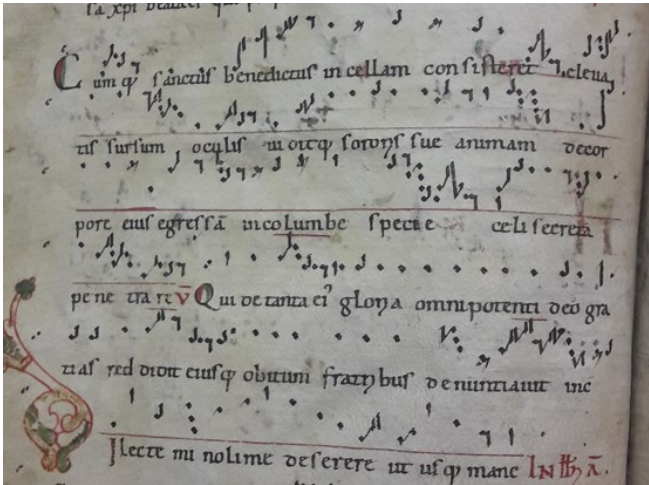 Cum q; sanctus benedictus in cellam consisteret eleua
tis sursum oculis uidit q; sororis sue animam decor
pore eius egressã incolumbe specie celi secreta
penetrare V Qui de tanta ei' gloria omnipotenti deo gra
tias reddidit eiusq; obitum fratribus denuntiauit
Ilecte mi noli me deserere ut usq; mane